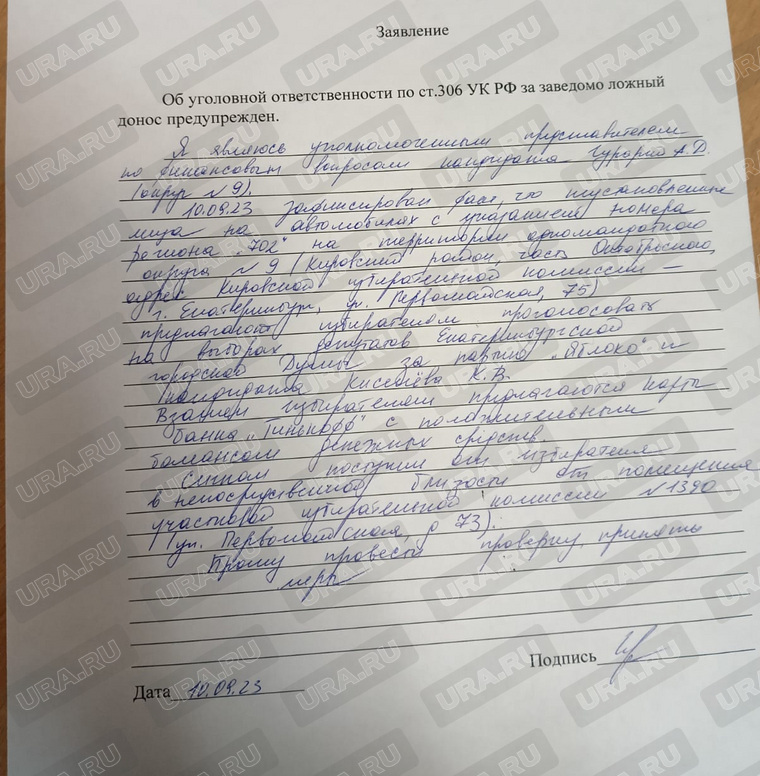 Заявление
Об уголовной ответственности по ст.306 УК РФ за заведомо ложный
донос предупрежден.
Я являюсь уполномоченным представителем
по финансовым вопросам кандидата А.Д.
(округ №9).
10.09.23 зафиксирован факт, что неустановленные
лица на автомобилях с указанием номера
региона "702" на территории одномандатного
округа №9 (Кировский район, часть Октябрьского,
адрес Кировской избирательной комиссии –
г. Екатеринбург, ул. Первомайская, 75)
предлагают избирателям проголосовать
на выборах депутатов Екатеринбургской
городской Думы за партию "Яблоко" и
кандидата Киселёва К.В.
Взамен избирателям предлагаются карты
банка "Тинькофф" с положительным
балансом денежных средств.
Сигнал поступил от избирателя
в непосредственной близости от помещения
участковой избирательной комиссии №1390
(ул. Первомайская, д 73).
Прошу провести проверку, принять
меры
Подпись
Дата 10.09.23
URA.RU